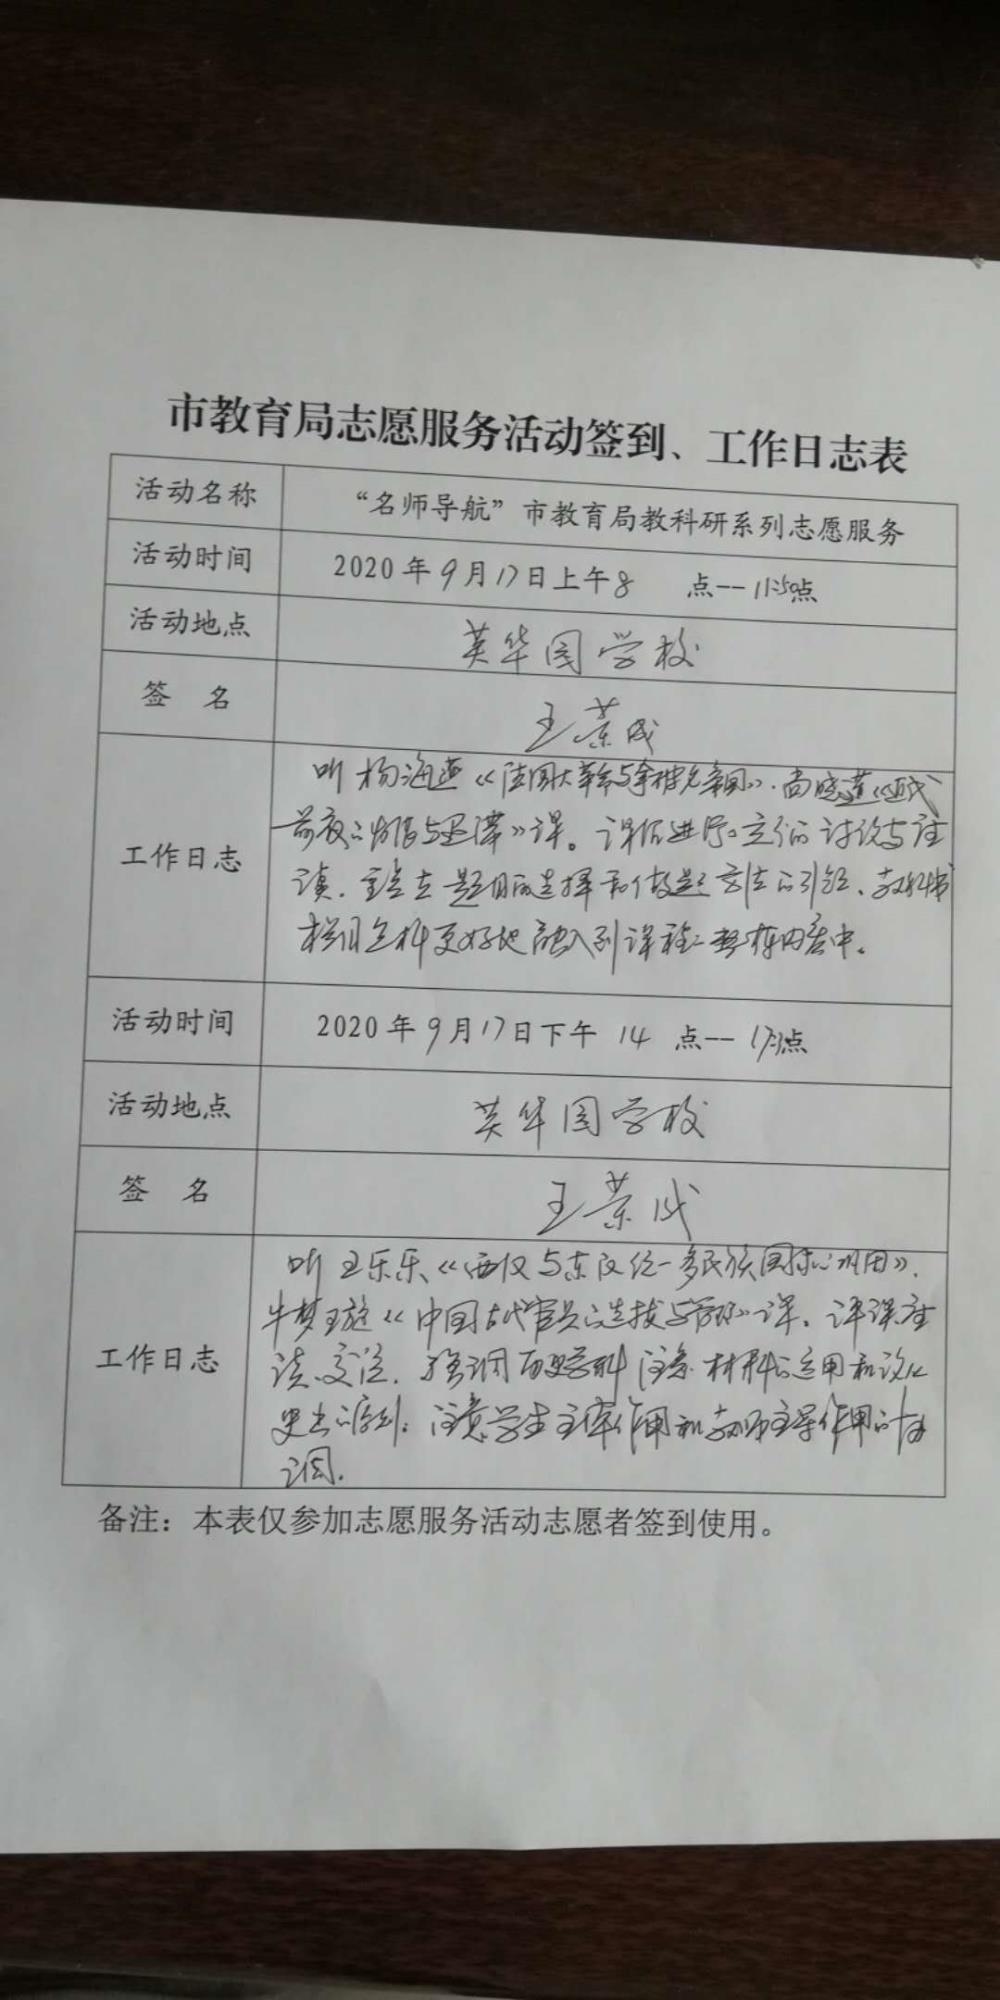 市教育局志愿服务活动签到、工作日志表
活动名称 “名师导航”市教育局教科研系列志愿服务
活动时间 2020年9月17日上午8 点--11:50点
活动地点 英华园学校
签 名 王荣成
工作日志 听杨海燕《法国大革命与拿破仑帝国》.尚晓
前夜的 》课。课后进行了充分的讨论与评
读. 重点在题目的选择和做题方法的引领、教科书
栏目怎样更好地融入到课程 内容中。
活动时间 2020年9月17日下午 14 点--17: 点
活动地点 英华园学校
签 名 王荣成
工作日志 听王乐乐《西汉与东汉统一多民族国家的巩固》.
牛梦璇《中国古代官员的选拔与管理》课. 评课座
谈.交流. 强调历史学科注意材料的运用和
史 的 ; 注意学生主体作用和教师主导作用的协
调.
备注：本表仅参加志愿服务活动志愿者签到使用。